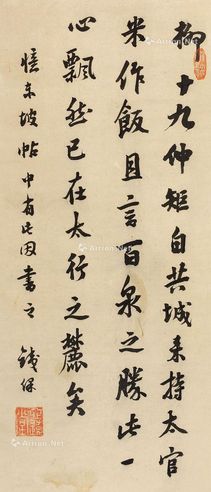 柳十九仲矩自共城来持太官
米作飯且言百泉之勝此一
心飄然已在太行之麓矣
憶东坡帖中有此因書之 鐵保